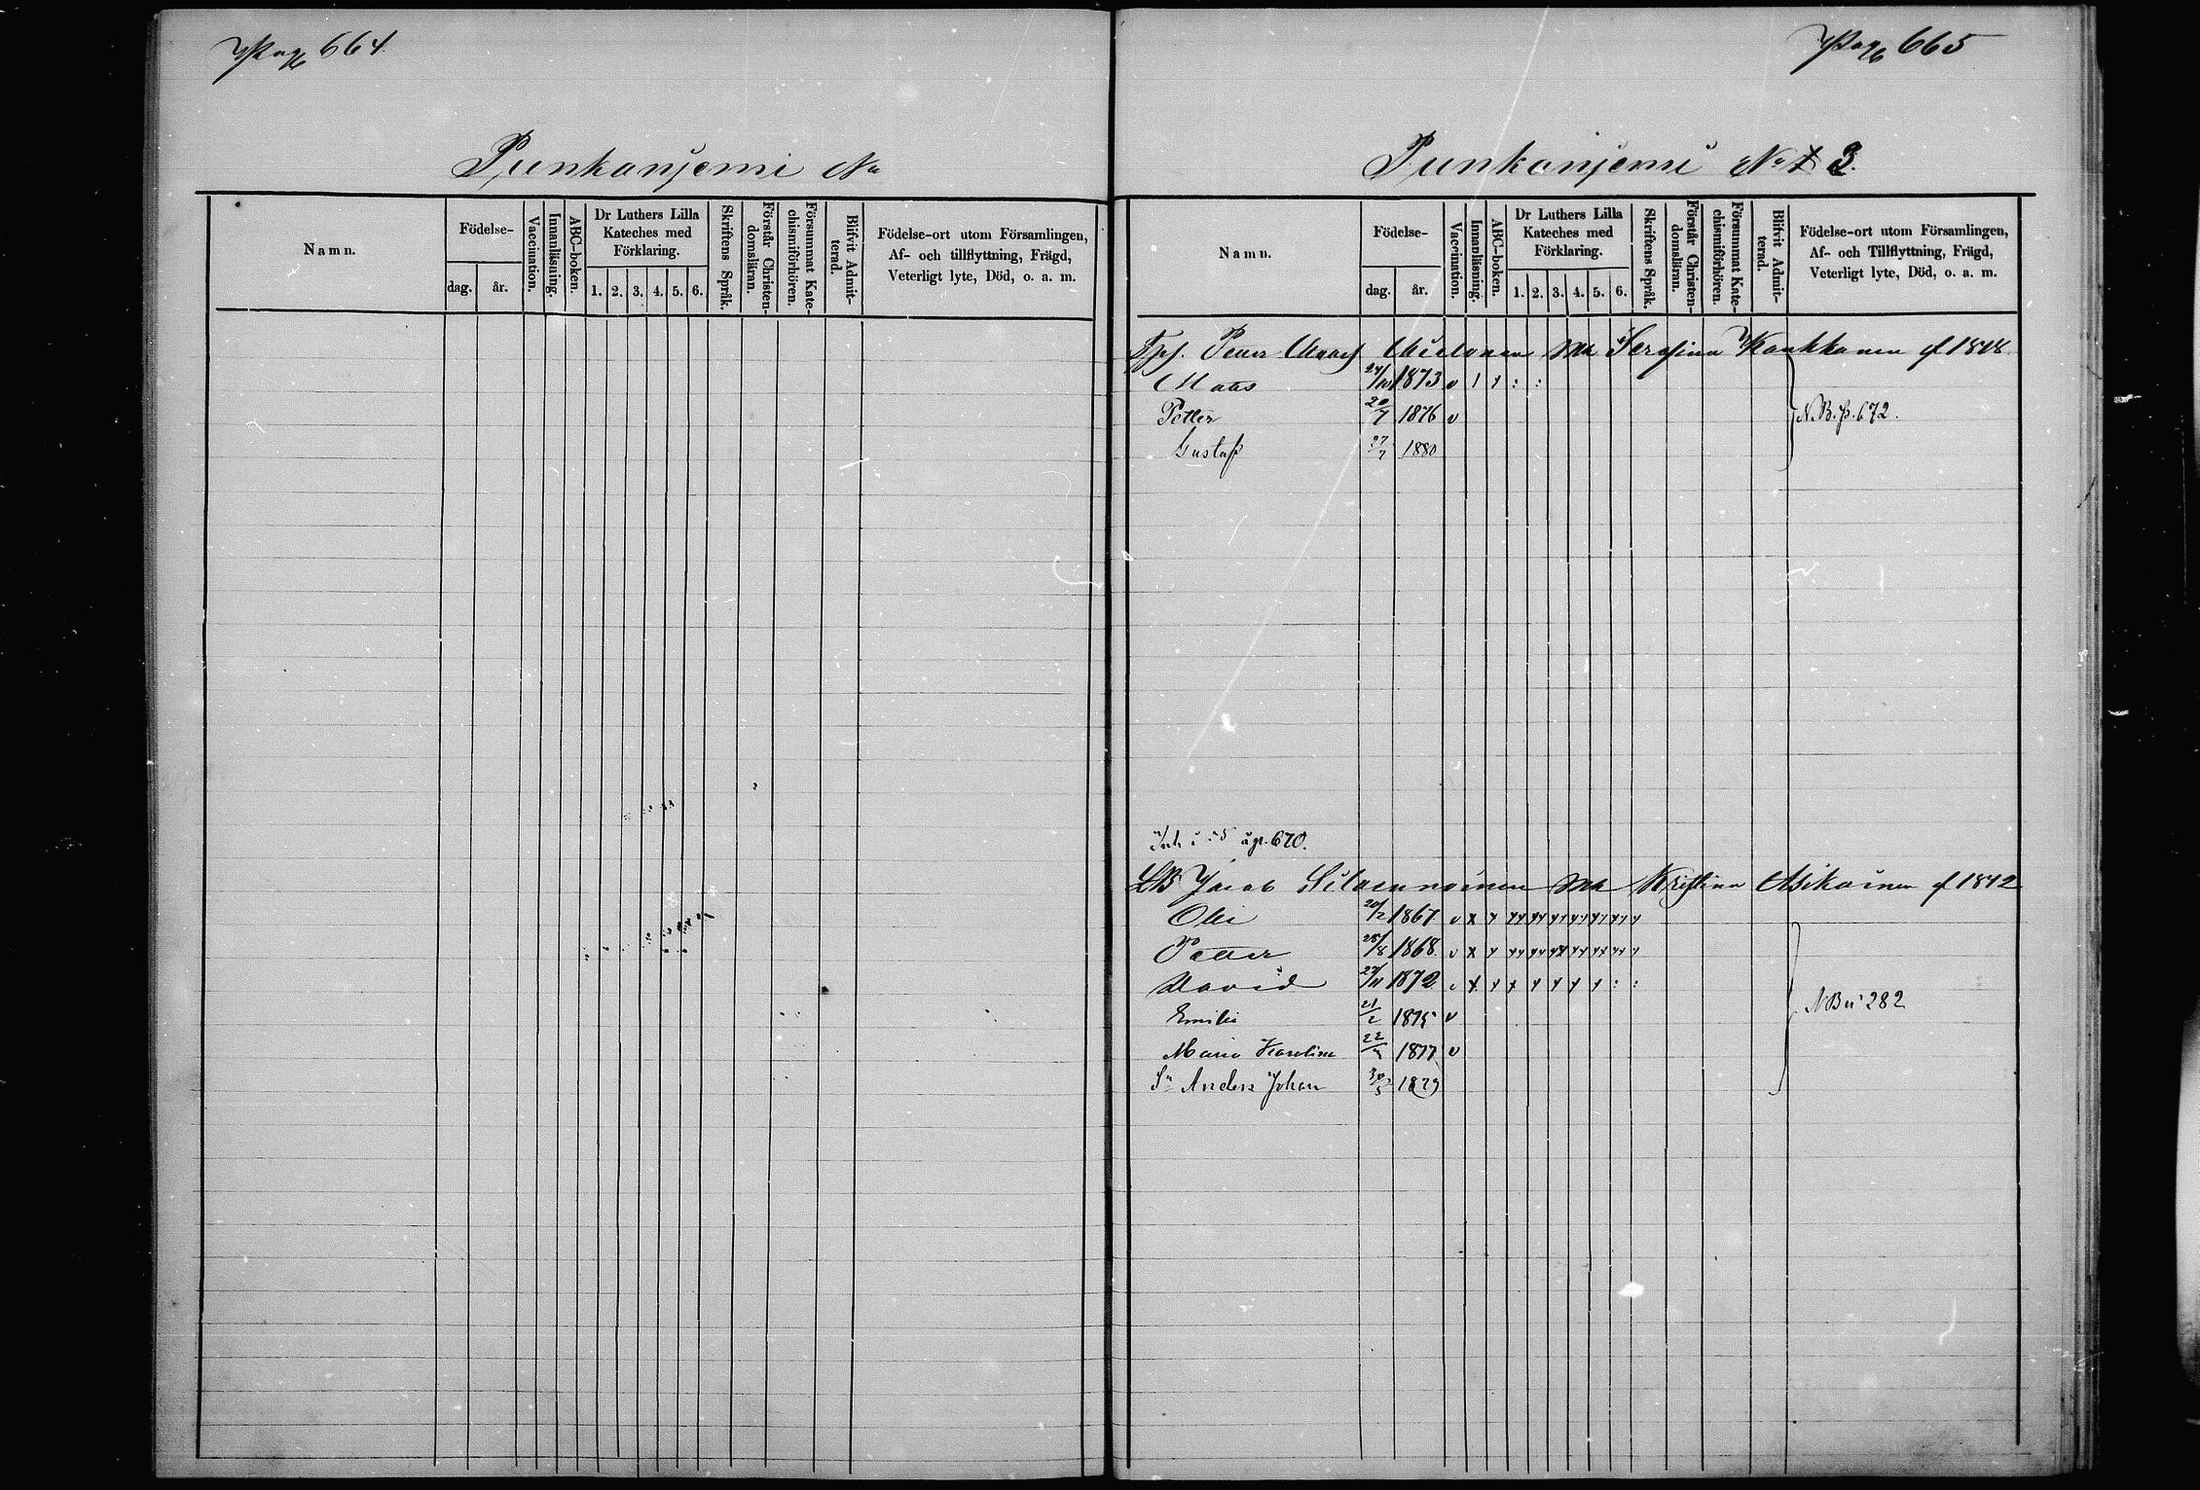 Pag 664
Punkanjemi No
Namn.
Födelse-
dag.
år.
Vaccination.
Innanläsning.
ABC-boken.
Dr Luthers Lilla
Kateches med
Förklaring.
1. 2. 3. 4. 5. 6.
Skriftens Språk.
Förstår Christen-
domsläran.
Försummat Kate-
chismiförhören.
Blifvit Admit-
terad.
Födelse-ort utom Församlingen,
Af- och tillflyttning, Frägd,
Veterligt lyte, Död, o. a. m.
Pag 665
Punkanjemi No 3.
Namn.
Födelse-
dag.
år.
Vaccination.
Innanläsning.
ABC-boken.
Dr Luthers Lilla
Kateches med
Förklaring.
1. 2. 3. 4. 5. 6.
Skriftens Språk.
Förstår Christen-
domsläran.
Försummat Kate-
chismiförhören.
Blifvit Admit-
terad.
Födelse-ort utom Församlingen,
Af- och Tillflyttning, Frägd,
Veterligt lyte, Död, o. a. m.
Petter Serafina Kaukkanen
Mats 24/10 1873 v
Petter 20/7 1876 v
N.B. p. 672.
Gustaf 27/7 1880
p. 670.
Jacob Kristina Asikainen f 1842
Olli 20/2 1867 v
Petter 28/8 1868 v
David 27/11 1872
NB 282
Emilie 21/2 1875 v
Maria Karolina 1877 v
Sn Anders Johan 1879